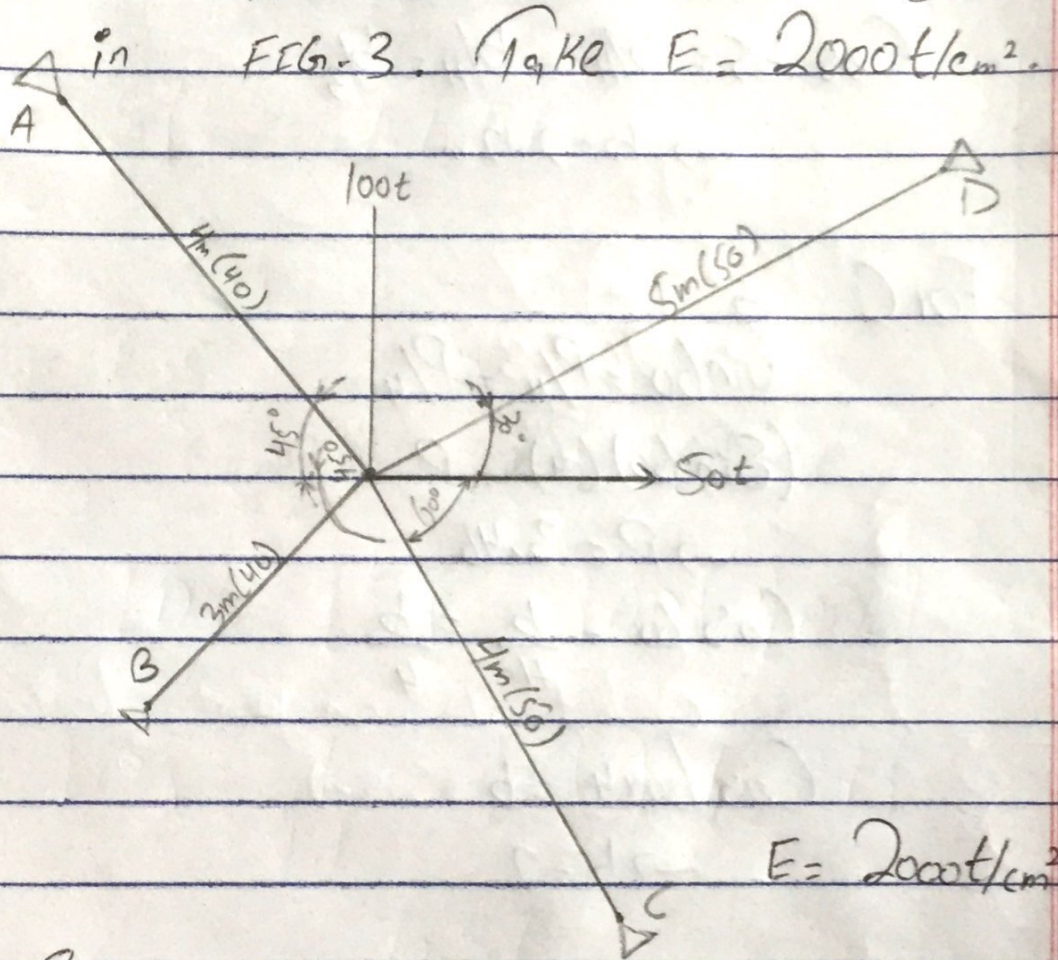 in FIG. 3. Take E = 2000t/cm².
A
100t
D
4m(40)
5m(50)
45°
45°
50t
60°
3m(40)
B
4m(50)
E = 2000t/cm²
C